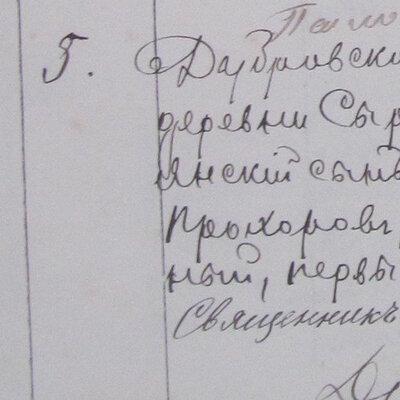 5. Дубровски
деревни Сыр
янскій сынъ
Прохоровъ,
ный, первы
Священникъ